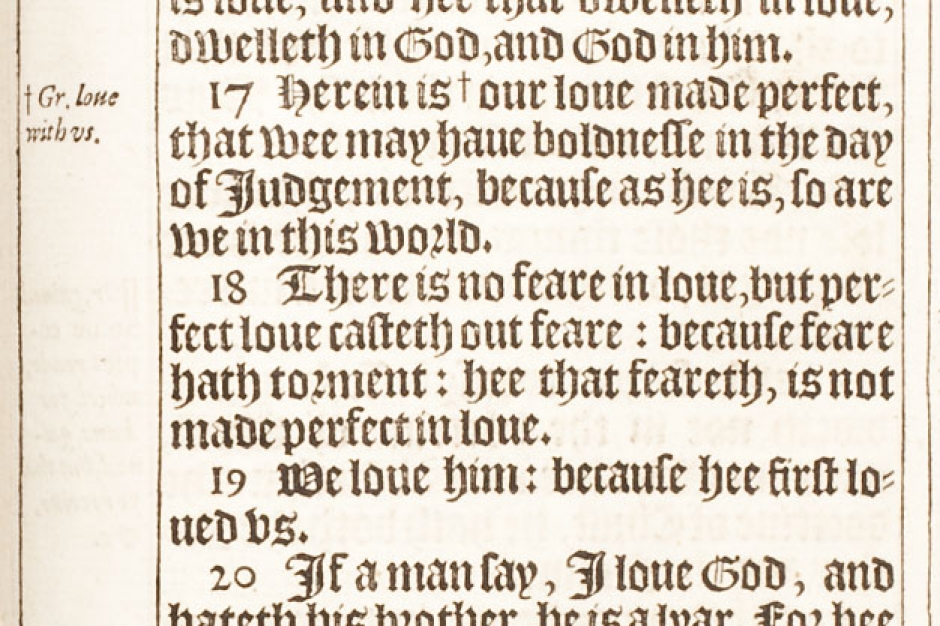 is loue, and hee that dwelleth in loue,
dwelleth in God, and God in him.
† Gr. loue
with vs.
17 Herein is † our loue made perfect,
that wee may haue boldneſſe in the day
of Judgement, becauſe as hee is, ſo are
we in this world.
18 There is no feare in loue, but per-
fect loue caſteth out feare : becauſe feare
hath torment : hee that feareth, is not
made perfect in loue.
19 We loue him : becauſe hee firſt lo-
ued vs.
20 If a man ſay, I loue God, and
hateth his brother, he is a lyar. For hee